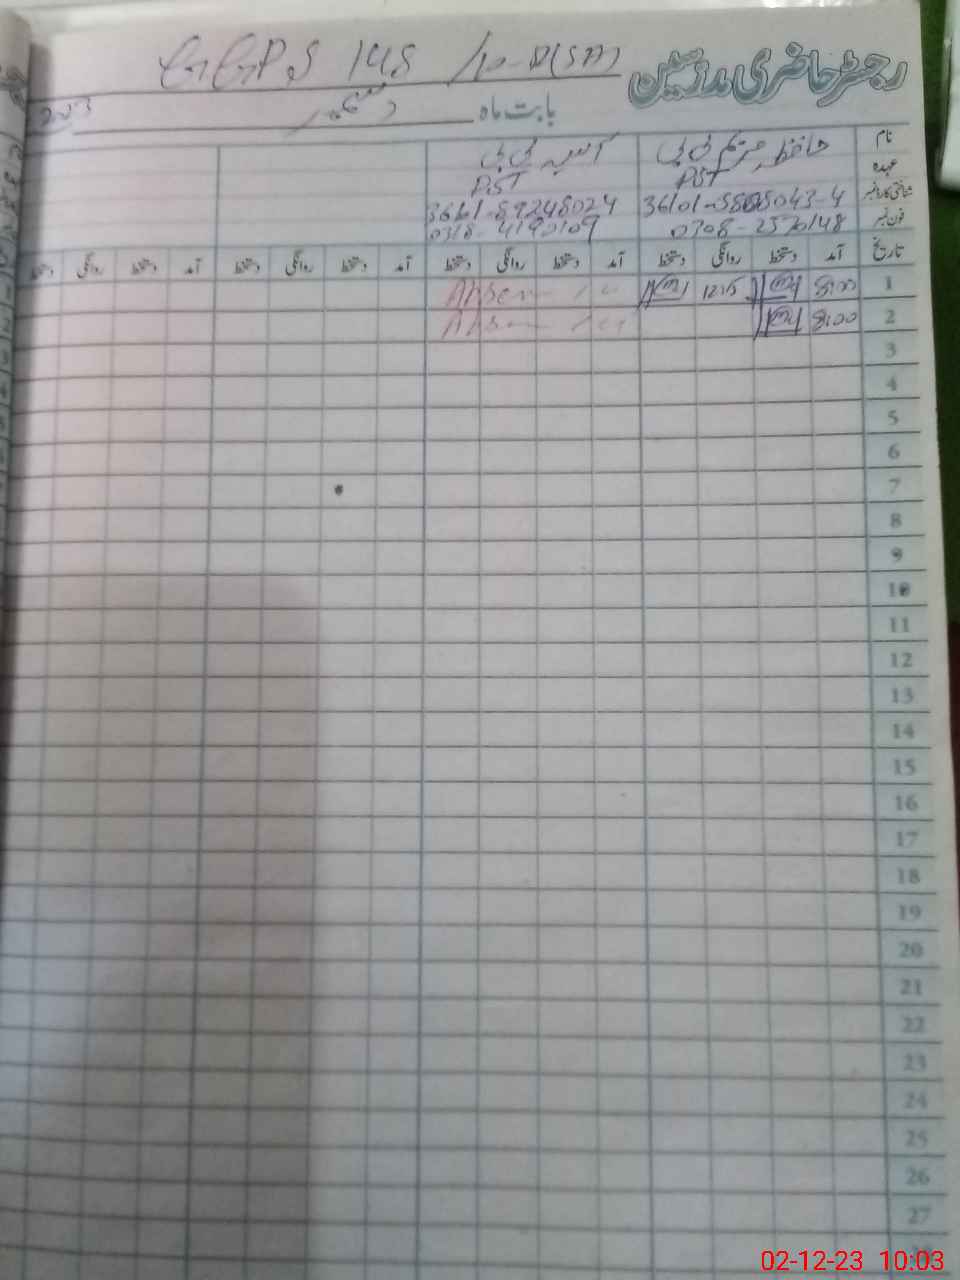 رجسٹر حاضری مدرسین GGPS 148 /10-R(SA)
بابت ماہ دسمبر
نام حافظہ مریم بی بی آسیہ بی بی
عہدہ PST PST
شناختی کارڈ نمبر
فون نمبر 0318-4190109
تاریخ آمد دستخط روانگی دستخط آمد دستخط روانگی دستخط آمد دستخط روانگی دستخط آمد دستخط روانگی دستخط
1 8:00 1215
2 8:00
3
4
5
6
7
8
9
10
11
12
13
14
15
16
17
18
19
20
21
22
23
24
25
26
27
02-12-23 10:03